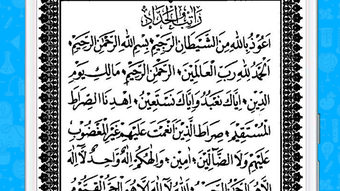 راتب الحداد
اَعُوْذُ بِاللهِ مِنَ الشَّيْطَانِ الرَّجِيْمِ بِسْمِ اللهِ الرَّحْمٰنِ الرَّحِيْمِ
اَلْحَمْدُ لِلّٰهِ رَبِّ الْعَالَمِيْنَ الرَّحْمٰنِ الرَّحِيْمِ مَالِكِ يَوْمِ
الدِّيْنِ اِيَّاكَ نَعْبُدُ وَاِيَّاكَ نَسْتَعِيْنُ اِهْدِنَا الصِّرَاطَ
الْمُسْتَقِيْمَ صِرَاطَ الَّذِيْنَ اَنْعَمْتَ عَلَيْهِمْ غَيْرِ الْمَغْضُوْبِ
عَلَيْهِمْ وَلَا الضَّآلِّيْنَ اٰمِيْنَ وَاِلٰهُكُمْ اِلٰهٌ وَّاحِدٌ لَآ اِلٰهَ